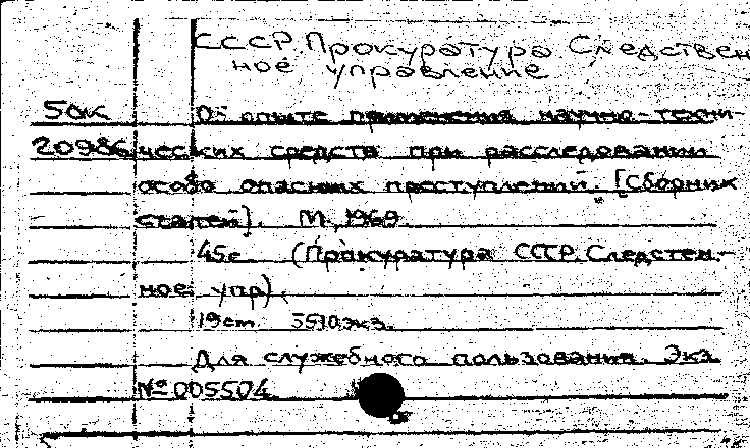 СССР. Прокуратура. Следствен
ное управление
50к Об опыте применения научно-техни-
20986 ческих средств при расследовании
особо опасных преступлений. [Сборник
статей]. М., 1969.
45с. (Прокуратура СССР. Следствен-
ное упр).
19см 3510экз.
Для служебного пользования. Экз.
№ 005504